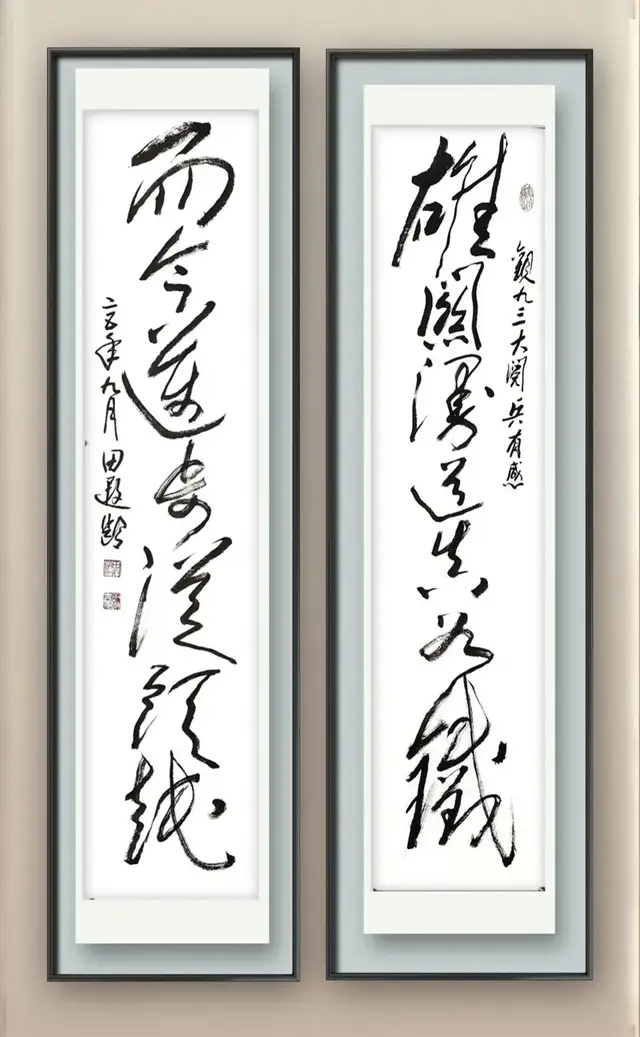 觀九三大閱兵有感
雄關漫道真如鐵
而今邁步從頭越
年九月田遐齡